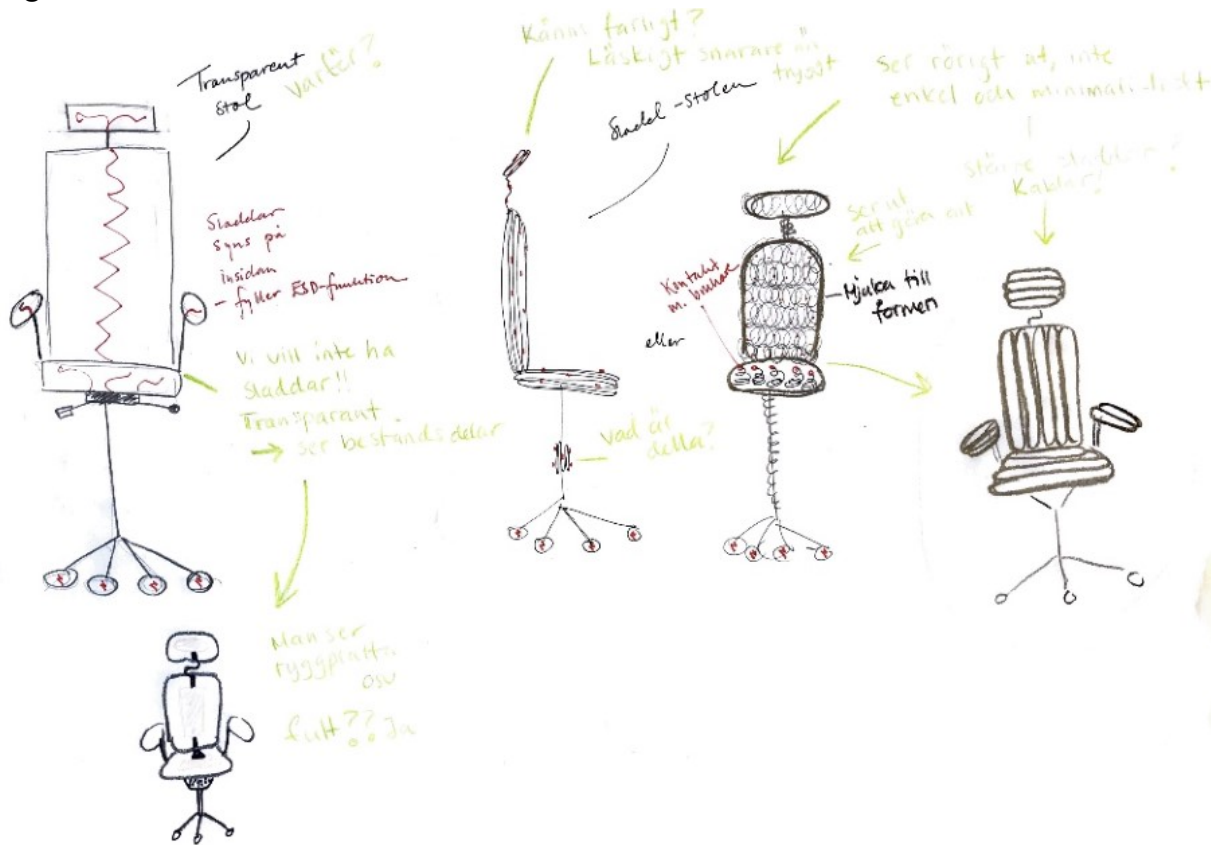 Transparent
stol
varför?
Sladdar
syns på
insidan
- fyller ESD-funktion
Vi vill inte ha
sladdar!!
Transparant
→ ser beståndsdelar
Man ser
ryggplatta
osv
fult??? Ja
Känns farligt?
Läskigt snarare än
tryggt
Sladd-stolen
eller
vad är
detta?
Ser rörigt ut, inte
enkel och minimalistiskt
Kontakt
m. brukare
ser ut
att göra ont
Mjuka till
formen
Större sladdar?
Kablar?